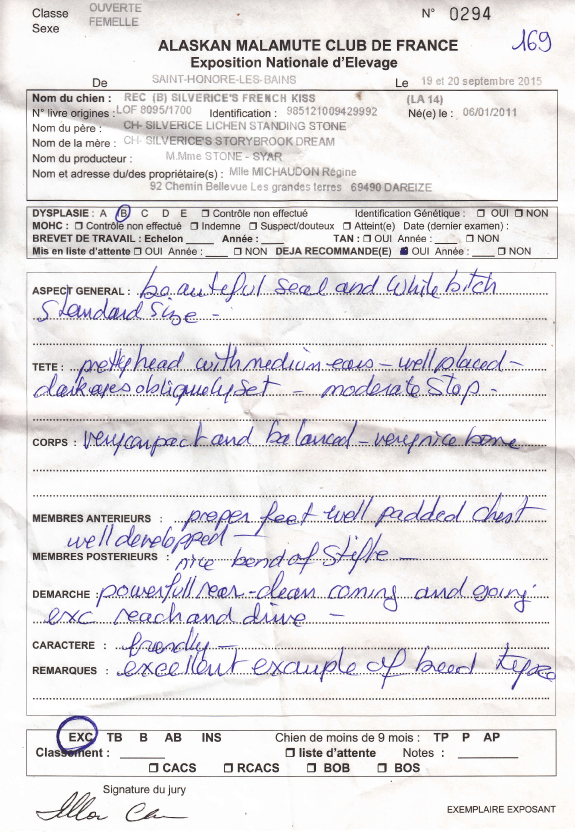 Classe OUVERTE N° 0294
Sexe FEMELLE
169
ALASKAN MALAMUTE CLUB DE FRANCE
Exposition Nationale d'Elevage
De SAINT-HONORE-LES-BAINS Le 19 et 20 septembre 2015
Nom du chien : REC (B) SILVERICE'S FRENCH KISS (LA 14)
N° livre origines : LOF 8095/1700 Identification : 985121009429992 Né(e) le : 06/01/2011
Nom du père : CH- SILVERICE LICHEN STANDING STONE
Nom de la mère : CH- SILVERICE'S STORYBROOK DREAM
Nom du producteur : M.Mme STONE - SYAR
Nom et adresse du/des propriétaire(s) : Mlle MICHAUDON Régine
92 Chemin Bellevue Les grandes terres 69490 DAREIZE
DYSPLASIE : A B C D E ☐ Contrôle non effectué Identification Génétique : ☐ OUI ☐ NON
MOHC : ☐ Contrôle non effectué ☐ Indemne ☐ Suspect/douteux ☐ Atteint(e) Date (dernier examen) :
BREVET DE TRAVAIL : Echelon ____ Année : ____ TAN : ☐ OUI Année : ____ ☐ NON
Mis en liste d'attente ☐ OUI Année : ____ ☐ NON DEJA RECOMMANDE(E) ■ OUI Année : ____ ☐ NON
ASPECT GENERAL : beauteful seal and white bitch
Standard Size -
TETE : pretty head with medium ears - well placed -
dark eyes obliquely set - moderate Stop -
CORPS : very compact and balanced - very nice bone
MEMBRES ANTERIEURS : proper feet well padded chest
well developped -
MEMBRES POSTERIEURS : nice bend of Stifle -
DEMARCHE : powerfull rear - clean coming and going
exc reach and drive -
CARACTERE : friendly -
REMARQUES : excellent example of breed type
EXC TB B AB INS Chien de moins de 9 mois : TP P AP
Classement : ____ ☐ liste d'attente Notes : ____
☐ CACS ☐ RCACS ☐ BOB ☐ BOS
Signature du jury
EXEMPLAIRE EXPOSANT